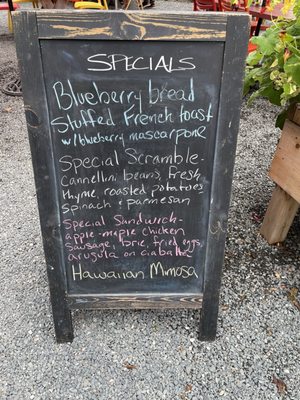 SPECIALS
Blueberry bread
Stuffed French toast
w/blueberry mascarpone
Special Scramble-
cannellini beans, fresh
thyme, roasted potatoes
spinach & parmesan
Special Sandwich-
apple-maple chicken
sausage, brie, fried eggs,
arugula on ciabatta
Hawaiian Mimosa